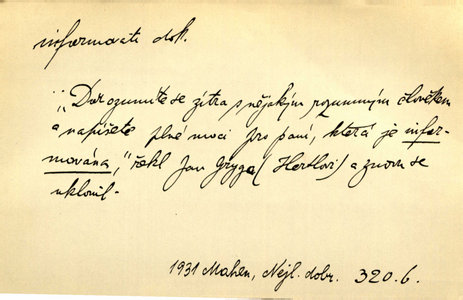 informovati dok.
„Dorozumíte se zítra s nějakým rozumným člověkem
a napíšete plné moci pro paní, která je infor-
mována," řekl Jan Gryga (Hertlovi) a znovu se
uklonil.
1931 Mahen, Nejl. dobr. 320.6.